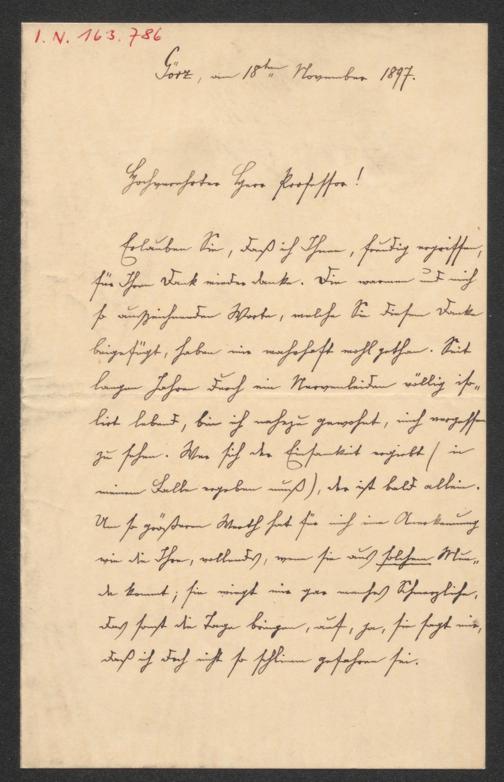 I. N. 163.786
Görz, am 18ten November 1897.
Hochverehrter Herr Professor!
Erlauben Sie, daß ich Ihnen, freudig ergriffen,
für Ihren Dank wieder danke. Die warmen und mich
so auszeichnenden Worte, welche Sie diesem Danke
beigefügt, haben mir wahrhaft wohl gethan. Seit
langen Jahren durch ein Nervenleiden völlig iso-
lirt lebend, bin ich nahezu gewohnt, mich vergessen
zu sehen. Wer sich der Einsamkeit ergiebt (in
meinem Falle ergeben muß), der ist bald allein.
Um so größeren Werth hat für mich eine Anerkennung
wie die Ihre, vollends, wenn sie aus solchem Mun-
de kommt; sie wiegt mir gar manches Schmerzliche,
das sonst die Tage bringen, auf, ja, sie sagt mir,
daß ich doch nicht so schlimm gefahren sei.